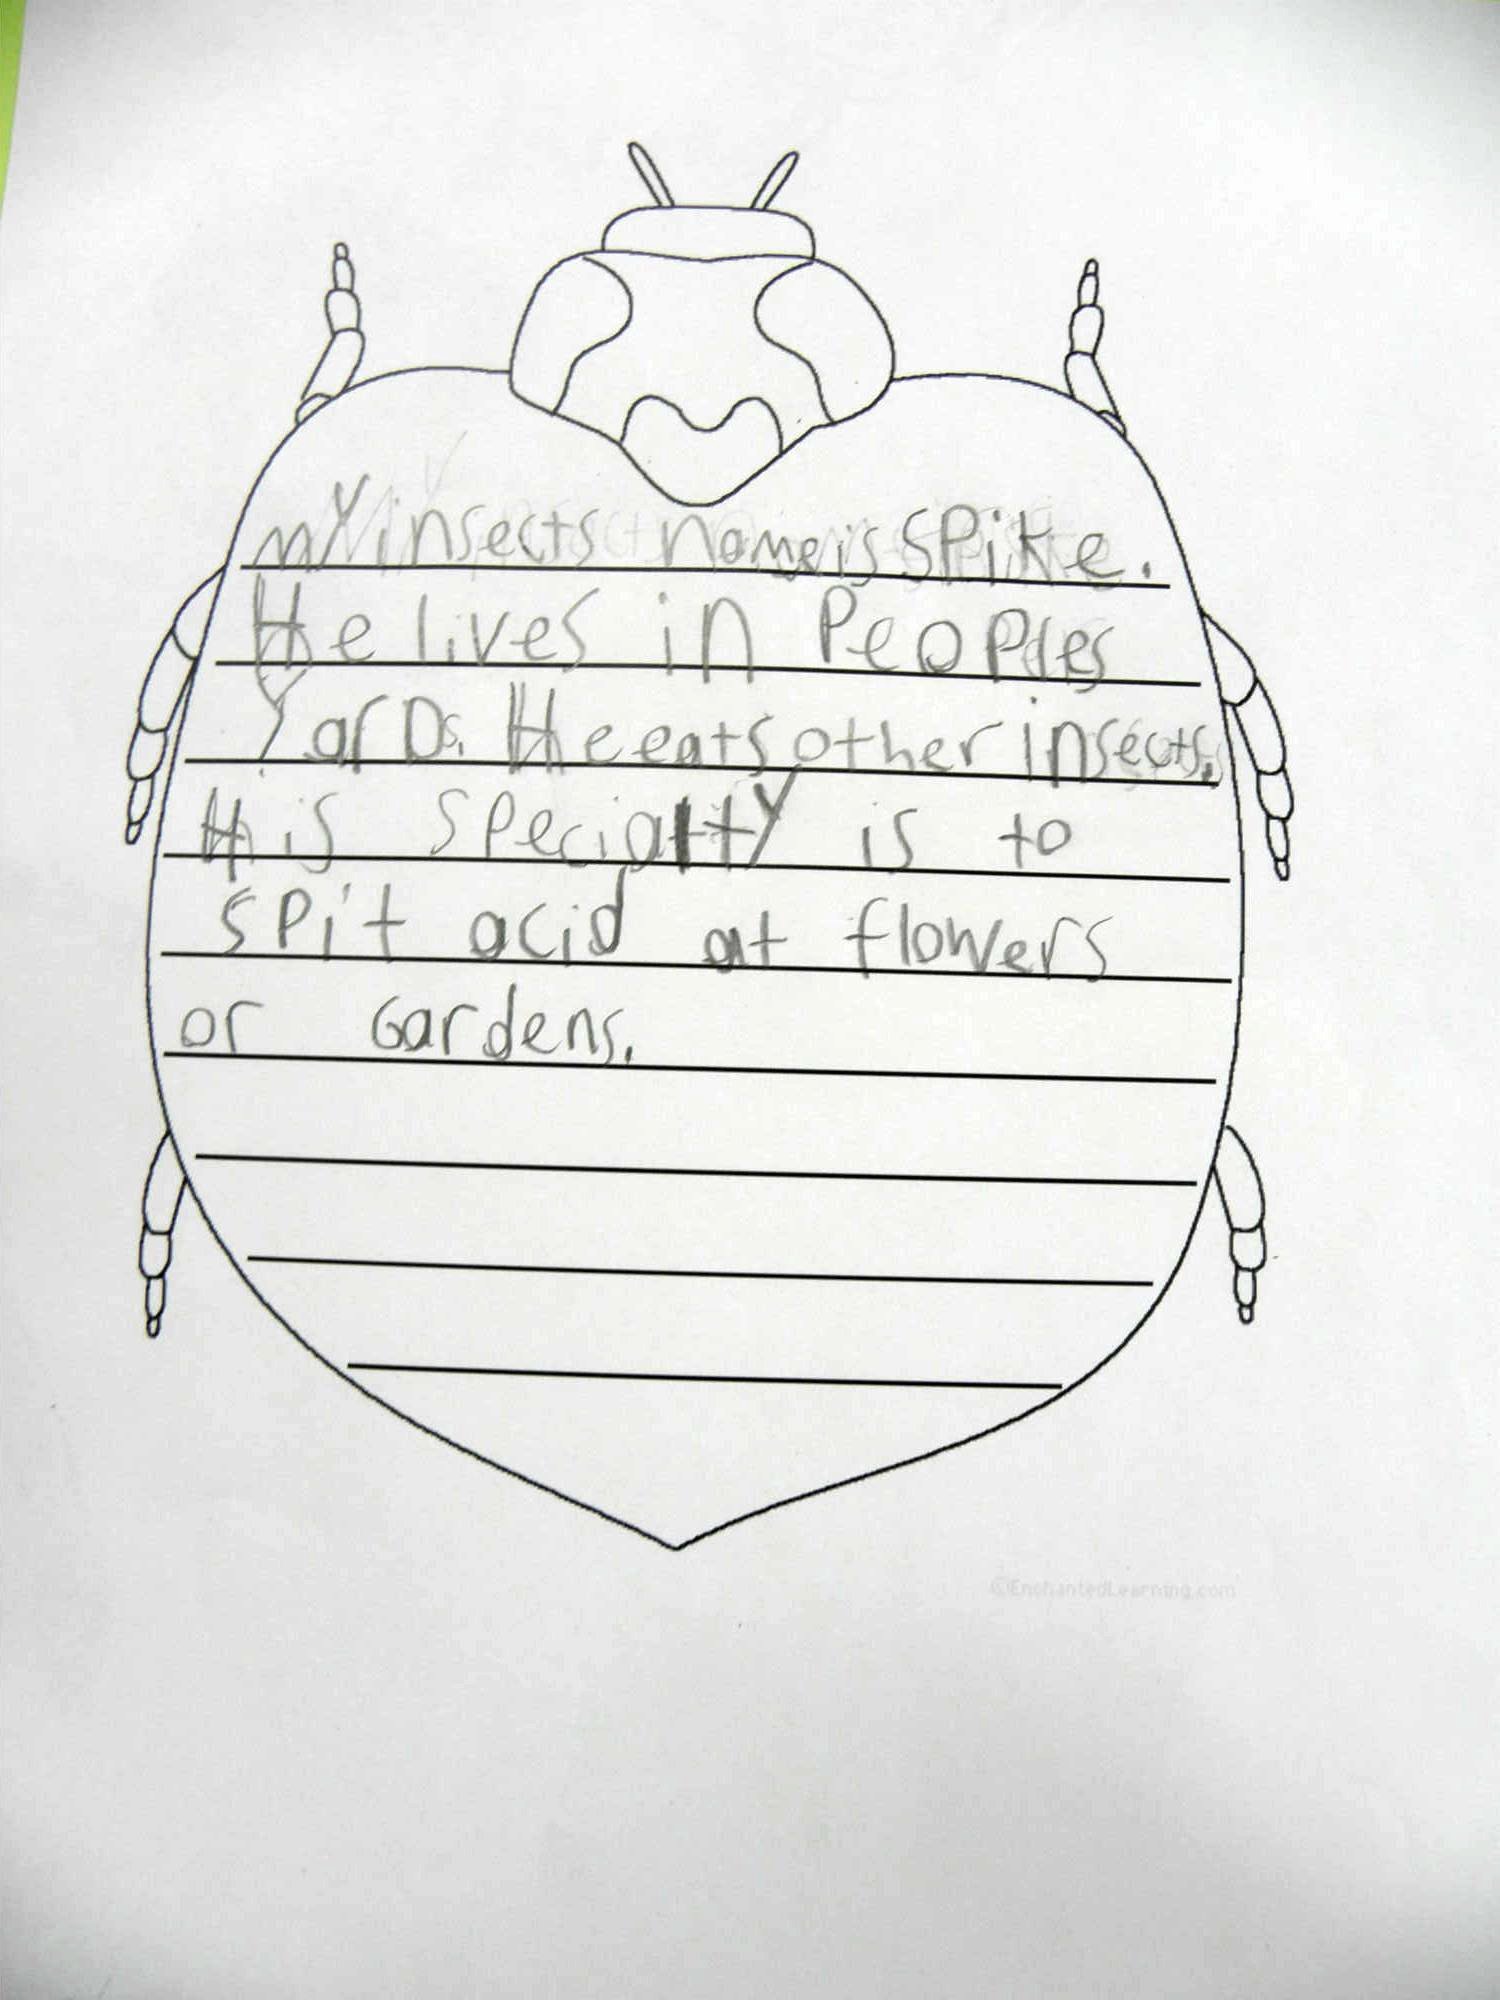 my insects name is spike.
He lives in Peoples
YarDs. He eats other insects.
His specialty is to
spit acid at flowers
or Gardens.
©EnchantedLearning.com